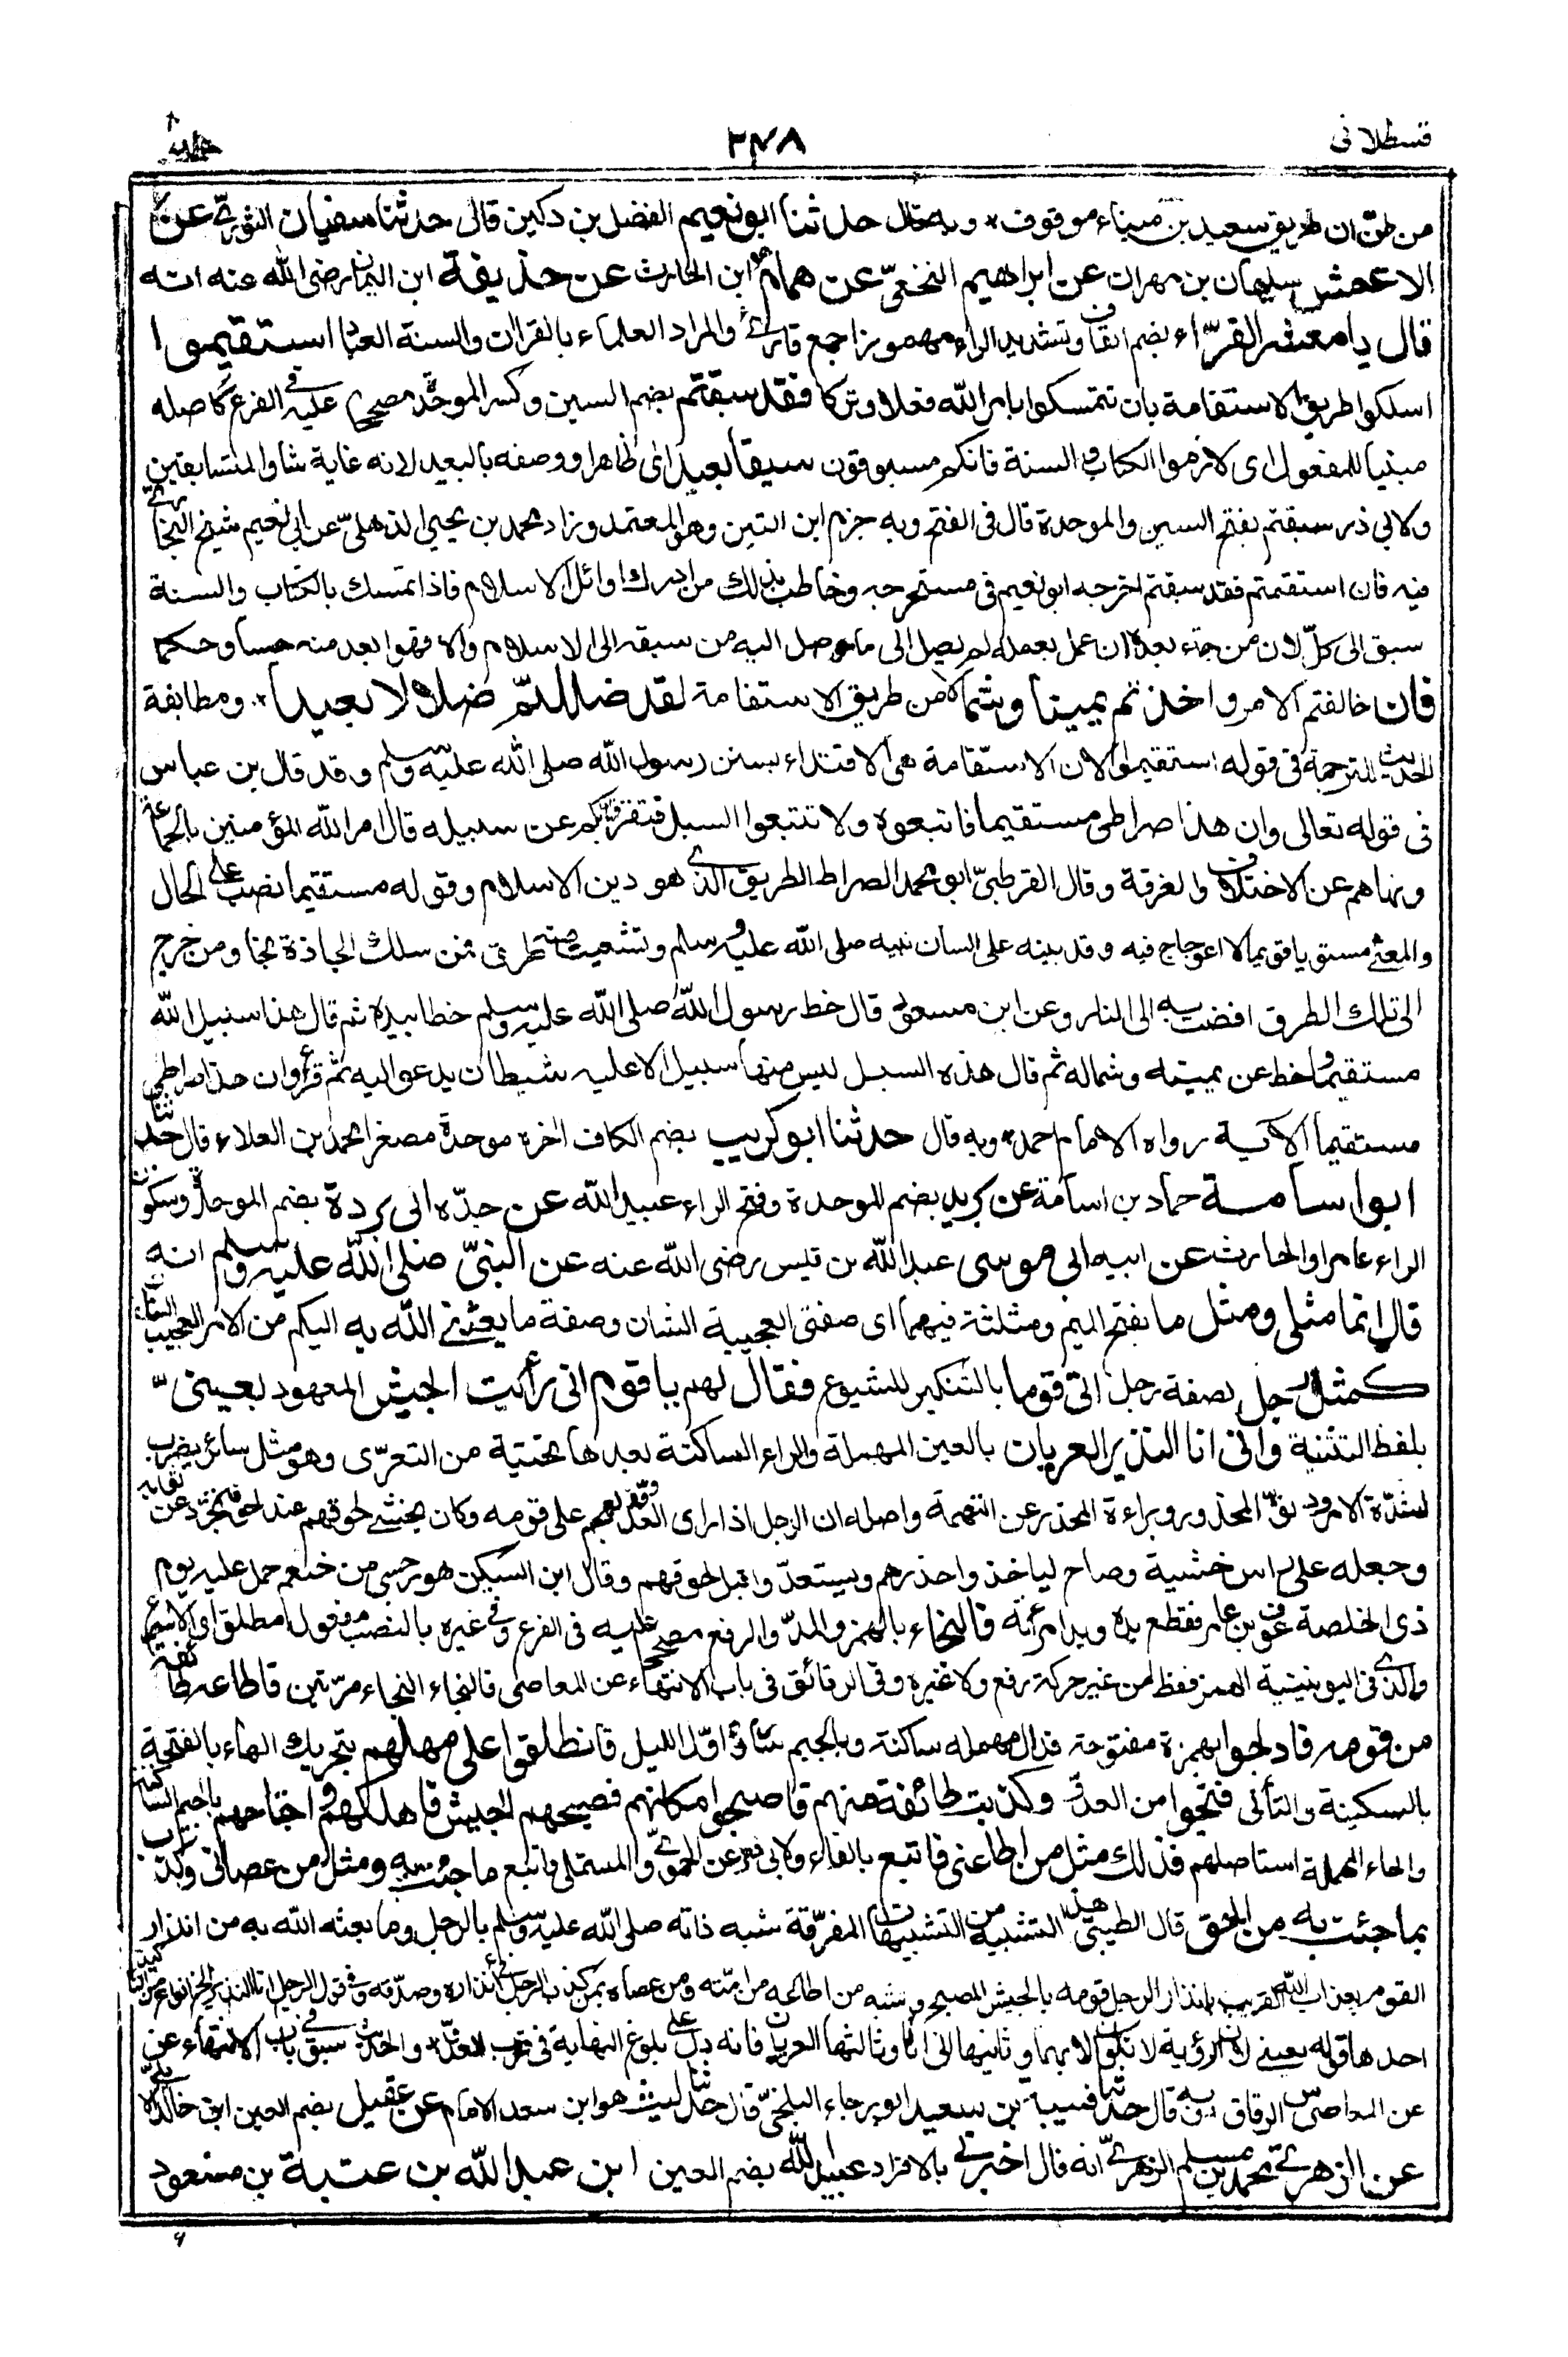 قسطلانى
٣٧٨
من ظن ان طريق سعيد بن ميناء موقوف * وبه قال حدثنا ابو نعيم الفضل بن دكين قال حدثنا سفيان الثورىّ عن
الاعمش سليمان بن مهران عن ابراهيم النخعىّ عن همام هو ابن الحارث عن حذيفة ابن اليمان رضى الله عنه انه
قال يا معشر القرّاء بضم القاف وتشديد الراء مهموزا جمع قارئ والمراد العلماء بالقرآن والسنة العباد استقيموا
اسلكوا طريق الاستقامة بان تتمسكوا بامر الله فعلا وتركا فقد سبقتم بضم السين وكسر الموحدة مصححا عليه فى الفرع كاصله
مبنيا للمفعول اى لازموا الكتاب والسنة فانكم مسبوقون سبقا بعيدا اى ظاهرا ووصفه بالبعيد لانه غاية شأو المتسابقين
ولابى ذر سبقتم بفتح السين والموحدة قال فى الفتح وبه جزم ابن التين وهو المعتمد وزاد محمد بن يحيى الذهلىّ عن ابى نعيم شيخ البخارىّ
فيه فان استقمتم فقد سبقتم اخرجه ابو نعيم فى مستخرجه وخاطب بذلك من ادرك اوائل الاسلام فاذا تمسك بالكتاب والسنة
سبق الى كلّ لان من جاء بعده ان عمل بعمله لم يصل الى ما وصل اليه من سبقه الى الاسلام والا فهو ابعد منه حسا وحكما
فان خالفتم الامر واخذتم يمينا وشمالا من طريق الاستقامة لقد ضللتم ضلالا بعيدا *. ومطابقة
الحديث للترجمة فى قوله استقيموا لان الاستقامة هى الاقتداء بسنن رسول الله صلى الله عليه وسلم وقد قال بن عباس
فى قوله تعالى وان هذا صراطى مستقيما فاتبعوه ولا تتبعوا السبل فتفرق بكم عن سبيله قال امر الله المؤمنين بالجماعة
ونهاهم عن الاختلاف والفرقة وقال القرطبىّ ابو محمد الصراط الطريق الذى هو دين الاسلام وقوله مستقيما نصب على الحال
والمعنى مستويا قويما لا اعوجاج فيه وقد بينه على لسان نبيه صلى الله عليه وسلم وتشعبت منه طرق فمن سلك الجادة نجا ومن خرج
الى تلك الطرق افضت به الى النار وعن ابن مسعود قال خط رسول الله صلى الله عليه وسلم خطا بيده ثم قال هذا سبيل الله
مستقيما وخط عن يمينه وشماله ثم قال هذه السبل ليس منها سبيل الا عليه شيطان يدعو اليه ثم قرأ وان هذا صراطى
مستقيما الآية رواه الامام احمد * وبه قال حدثنا ابو كريب بضم الكاف آخره موحدة مصغرا محمد بن العلاء قال حدثنا
ابو اسامة حماد بن اسامة عن بريد بضم الموحدة وفتح الراء عبيد الله عن جدّه ابى بردة بضم الموحدة وسكون
الراء عامر او الحارث عن ابيه ابى موسى عبد الله بن قيس رضى الله عنه عن النبىّ صلى الله عليه وسلم انه
قال انما مثلى ومثل ما بفتح الميم ومثلثة فيهما اى صفتى العجيبة الشان وصفة ما بعثنى الله به اليكم من الامر العجيب الشان
كمثل رجل بصفة رجل اتى قوما بالتنكير للشيوع فقال لهم يا قوم انى رأيت الجيش المعهود بعينىّ
بلفظ التثنية وانى انا النذير العريان بالعين المهملة والراء الساكنة بعدها تحتية من التعرّى وهو مثل سائر يضرب
لشدّة الامر ودنوّ المحذور وبراءة المحذر عن التهمة واصله ان الرجل اذا رأى العدو قد هجم على قومه وكان يخشى لحوقهم عند لحوقه تجرد عن ثيابه
وجعله على رأس خشبة وصاح لياخذوا حذرهم ويستعدّوا قبل لحوقهم وقال ابن السكيت هو رجل من خثعم حمل عليه يوم
ذى الخلصة عوف بن عامر فقطع يده ويد امرأته فالنجاء بالهمز والمدّ والرفع مصححا عليه فى الفرع وفى غيره بالنصب مفعول مطلق اى الاسراع
والذى فى اليونينية الهمز فقط من غير حركة رفع ولا غيره وفى الرقائق فى باب الانتهاء عن المعاصى فالنجاء النجاء مرّتين فاطاعه طائفة
من قومه فادلجوا بهمزة مفتوحة فدال مهملة ساكنة وبالجيم ساروا اوّل الليل فانطلقوا على مهلهم بتحريك الهاء بالفتحة
بالسكينة والتأنى فنجوا من العدوّ وكذبت طائفة منهم فاصبحوا مكانهم فصبحهم الجيش فاهلكهم واجتاحهم بالجيم الساكنة
والحاء المهملة استاصلهم فذلك مثل من اطاعنى فاتبع بالفاء ولابى ذر عن الحموىّ والمستملى واتبع ما جئت به ومثل من عصانى وكذب
بما جئت به من الحق قال الطيبى هذا التشبيه من التشبيهات المفرّقة شبه ذاته صلى الله عليه وسلم بالرجل وما بعثه الله به من انذار
القوم بعذاب الله القريب بانذار الرجل قومه بالجيش المصبح وشبه من اطاعه من امّته ومن عصاه بمن كذب الرجل فى انذاره وصدّقه وفى قول الرجل انا النذير الخ انواع من التاكيد
احدها قوله بعينى لان الرؤية لا تكون الا بهما وثانيها انى انا وثالثها العريان فانه دل على بلوغ النهاية فى قرب العدوّ والحديث سبق فى باب الانتهاء عن
عن المعاصى من الرقاق * وبه قال حدثنا قتيبة بن سعيد ابو رجاء البلخىّ قال حدثنا ليث هو ابن سعد الامام عن عقيل بضم العين ابن خالد الايلىّ
عن الزهرىّ محمد بن مسلم الزهرىّ انه قال اخبرنى بالافراد عبيد الله بضم العين ابن عبد الله بن عتبة بن مسعود